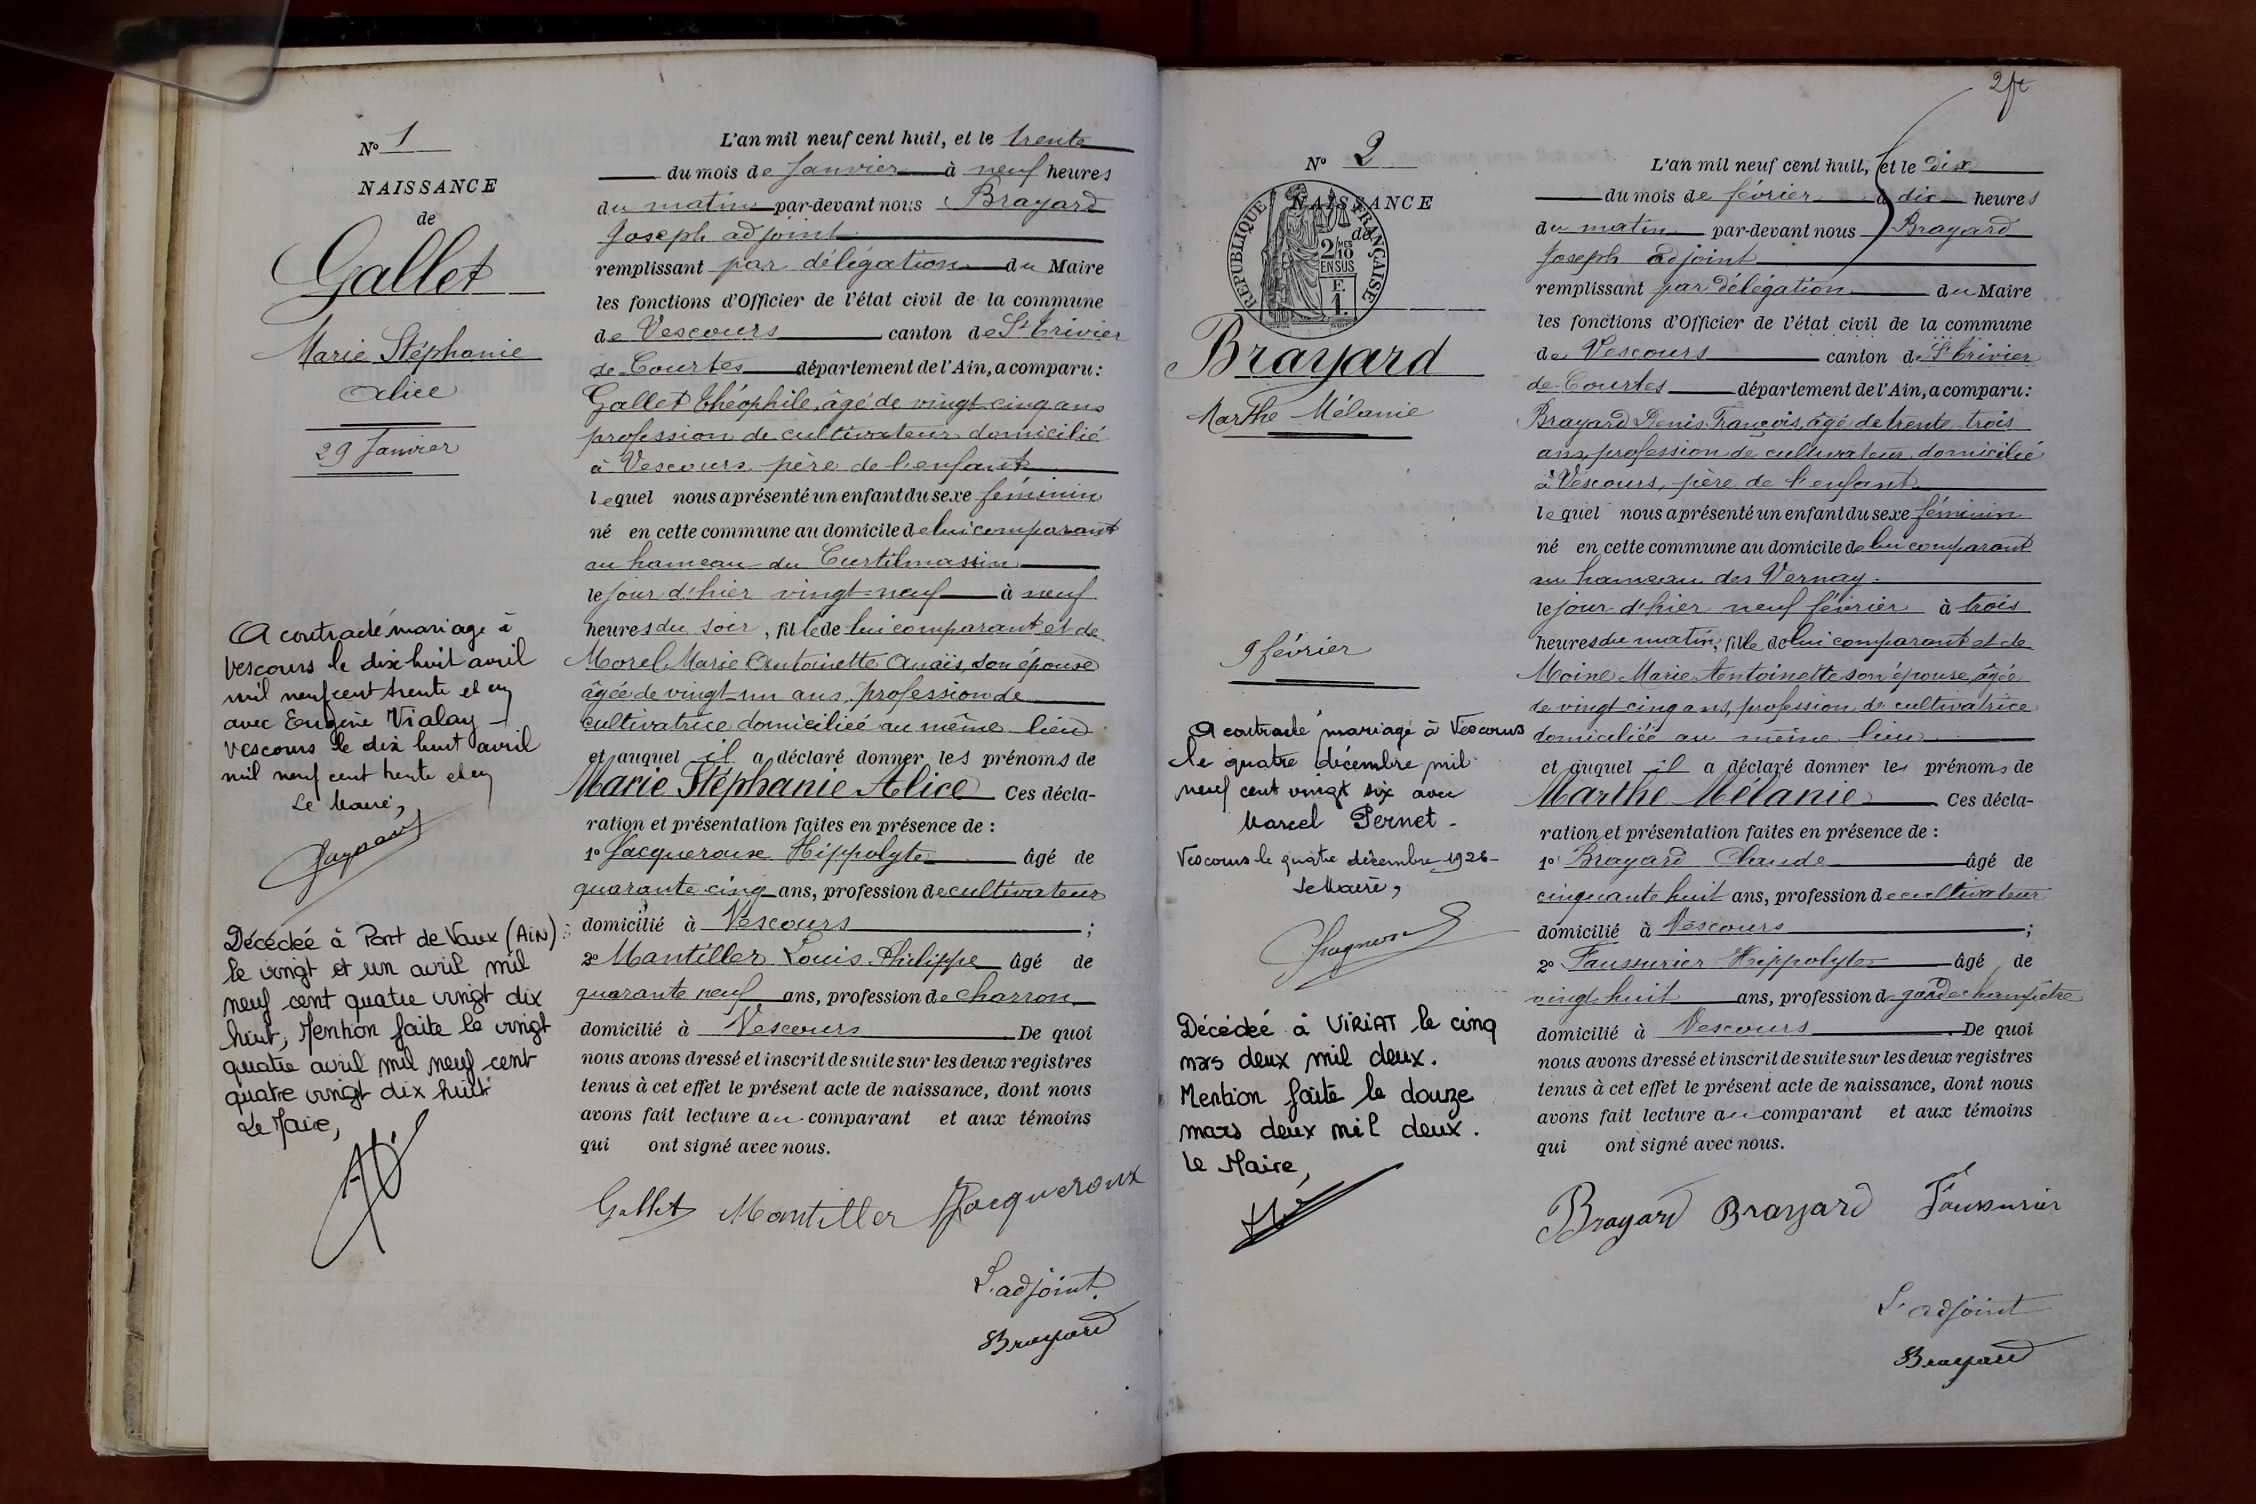 Nº 1
NAISSANCE
de
Gallet
Marie Stéphanie
Alice
29 Janvier
A contracté mariage à
Vescours le dix huit avril
mil neuf cent trente et un
avec Eugène Vialay -
Vescours le dix huit avril
mil neuf cent trente et un
Le Maire,
Décédée à Pont de Vaux (AiN)
le vingt et un avril mil
neuf cent quatre vingt dix
huit, Mention faite le vingt
quatre avril mil neuf cent
quatre vingt dix huit
Le Maire,
L'an mil neuf cent huit, et le trente
du mois de Janvier à neuf heures
du matin par-devant nous Brayard
Joseph adjoint
remplissant par délégation du Maire
les fonctions d'Officier de l'état civil de la commune
de Vescours canton de St Trivier
de Courtes département de l'Ain, a comparu :
Gallet Théophile, âgé de vingt-cinq ans
profession de cultivateur domicilié
à Vescours père de l'enfant
lequel nous a présenté un enfant du sexe féminin
né en cette commune au domicile de lui comparant
au hameau du Curtilmassin
le jour d'hier vingt-neuf à neuf
heures du soir, fille de lui comparant et de
Morel Marie Antoinette Anaïs, son épouse
âgée de vingt-un ans, profession de
cultivatrice domiciliée au même lieu
et auquel il a déclaré donner les prénoms de
Marie Stéphanie Alice Ces décla-
ration et présentation faites en présence de :
1º Jacqueroux Hippolyte âgé de
quarante-cinq ans, profession de cultivateur
domicilié à Vescours ;
2º Mantiller Louis Philippe âgé de
quarante neuf ans, profession de charron
domicilié à Vescours De quoi
nous avons dressé et inscrit de suite sur les deux registres
tenus à cet effet le présent acte de naissance, dont nous
avons fait lecture au comparant et aux témoins
qui ont signé avec nous.
Gallet Mantiller Jacqueroux
L'adjoint.
Brayard
2
Nº 2
NAISSANCE
de
RÉPUBLIQUE FRANÇAISE
2/10MES
EN SUS
F.
1.
Brayard
Marthe Mélanie
9 février
A contracté mariage à Vescours
le quatre décembre mil
neuf cent vingt six avec
Marcel Pernet -
Vescours le quatre décembre 1926 -
Le Maire,
Décédée à ViRiAT le cinq
mars deux mil deux.
Mention faite le douze
mars deux mil deux.
Le Maire,
L'an mil neuf cent huit, et le dix
du mois de février à dix heures
du matin par-devant nous Brayard
Joseph adjoint
remplissant par délégation du Maire
les fonctions d'Officier de l'état civil de la commune
de Vescours canton de St Trivier
de Courtes département de l'Ain, a comparu :
Brayard Denis François, âgé de trente-trois
ans, profession de cultivateur domicilié
à Vescours, père de l'enfant
lequel nous a présenté un enfant du sexe féminin
né en cette commune au domicile de lui comparant
au hameau des Vernay.
le jour d'hier neuf février à trois
heures du matin, fille de lui comparant et de
Moine Marie Antoinette son épouse, âgée
de vingt-cinq ans, profession de cultivatrice
domiciliée au même lieu
et auquel il a déclaré donner les prénoms de
Marthe Mélanie Ces décla-
ration et présentation faites en présence de :
1º Brayard Claude âgé de
cinquante huit ans, profession de cultivateur
domicilié à Vescours ;
2º Faussurier Hippolyte âgé de
vingt huit ans, profession de garde champêtre
domicilié à Vescours De quoi
nous avons dressé et inscrit de suite sur les deux registres
tenus à cet effet le présent acte de naissance, dont nous
avons fait lecture au comparant et aux témoins
qui ont signé avec nous.
Brayard Brayard Faussurier
L'adjoint
Brayard